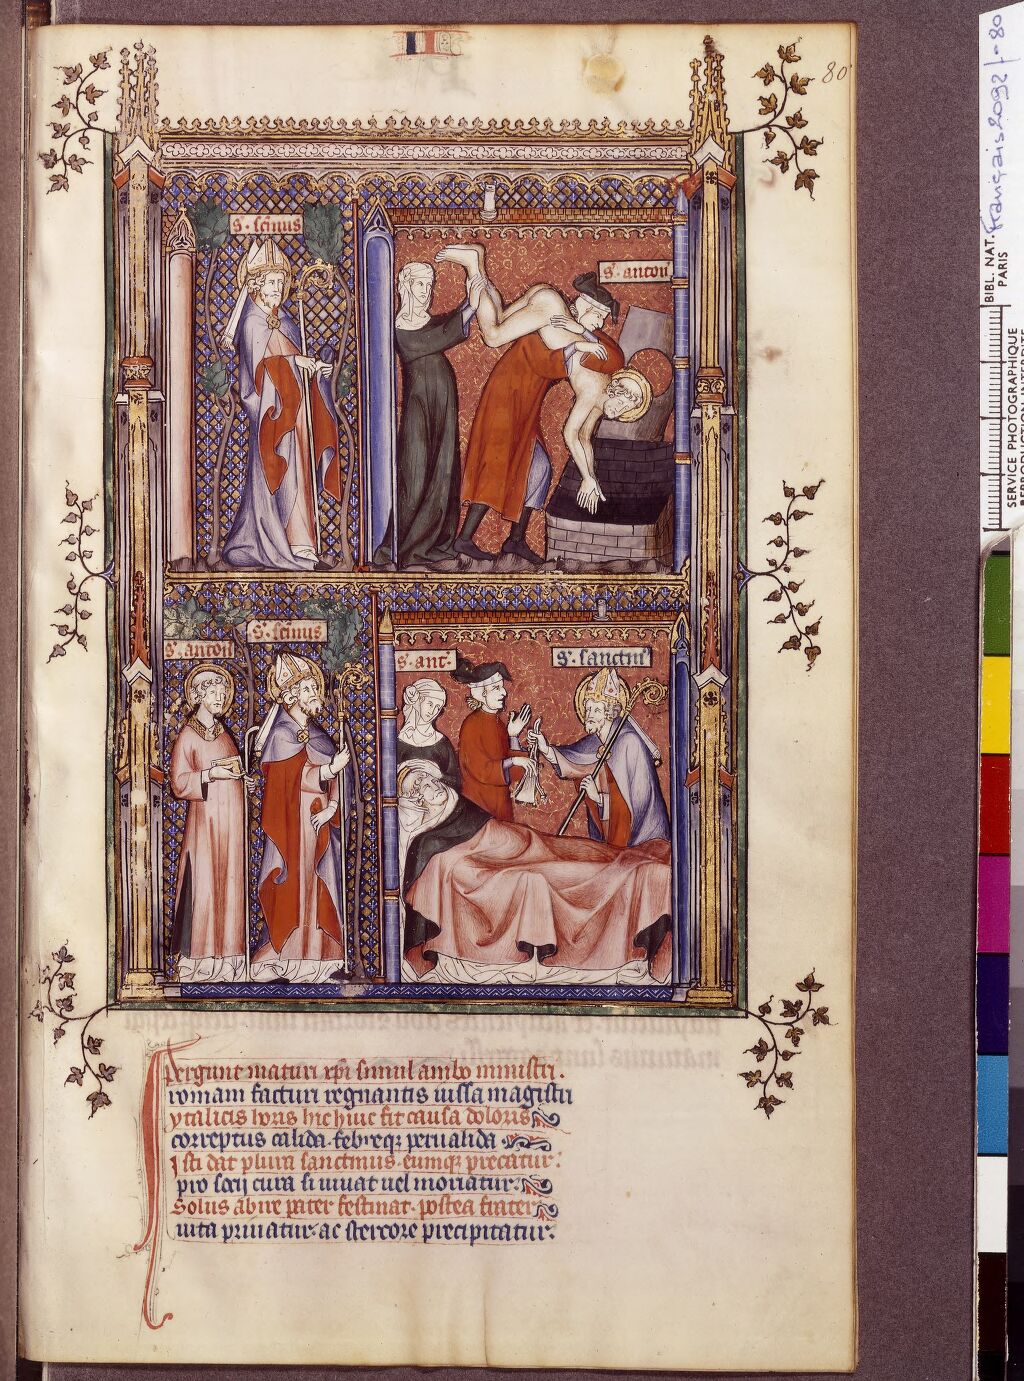 80
S. scinus
S. anton'
S. anton
S. scinus
S. ant.
S. sanctin'
Pergunt maturi xpi simul ambo ministri.
romam facturi regnantis iussa magistri
ytalicis horis hic hinc fit causa doloris
correptus calida. febreq; perualida.
Isti dat plura sanctinus. eumq; precatur:
pro socii cura si uiuat uel moriatur.
Solus abire pater festinat. postea frater
uita priuatur. ac stercore precipitatur.
Français 2092 f-80
BIBL. NAT.
PARIS
SERVICE PHOTOGRAPHIQUE